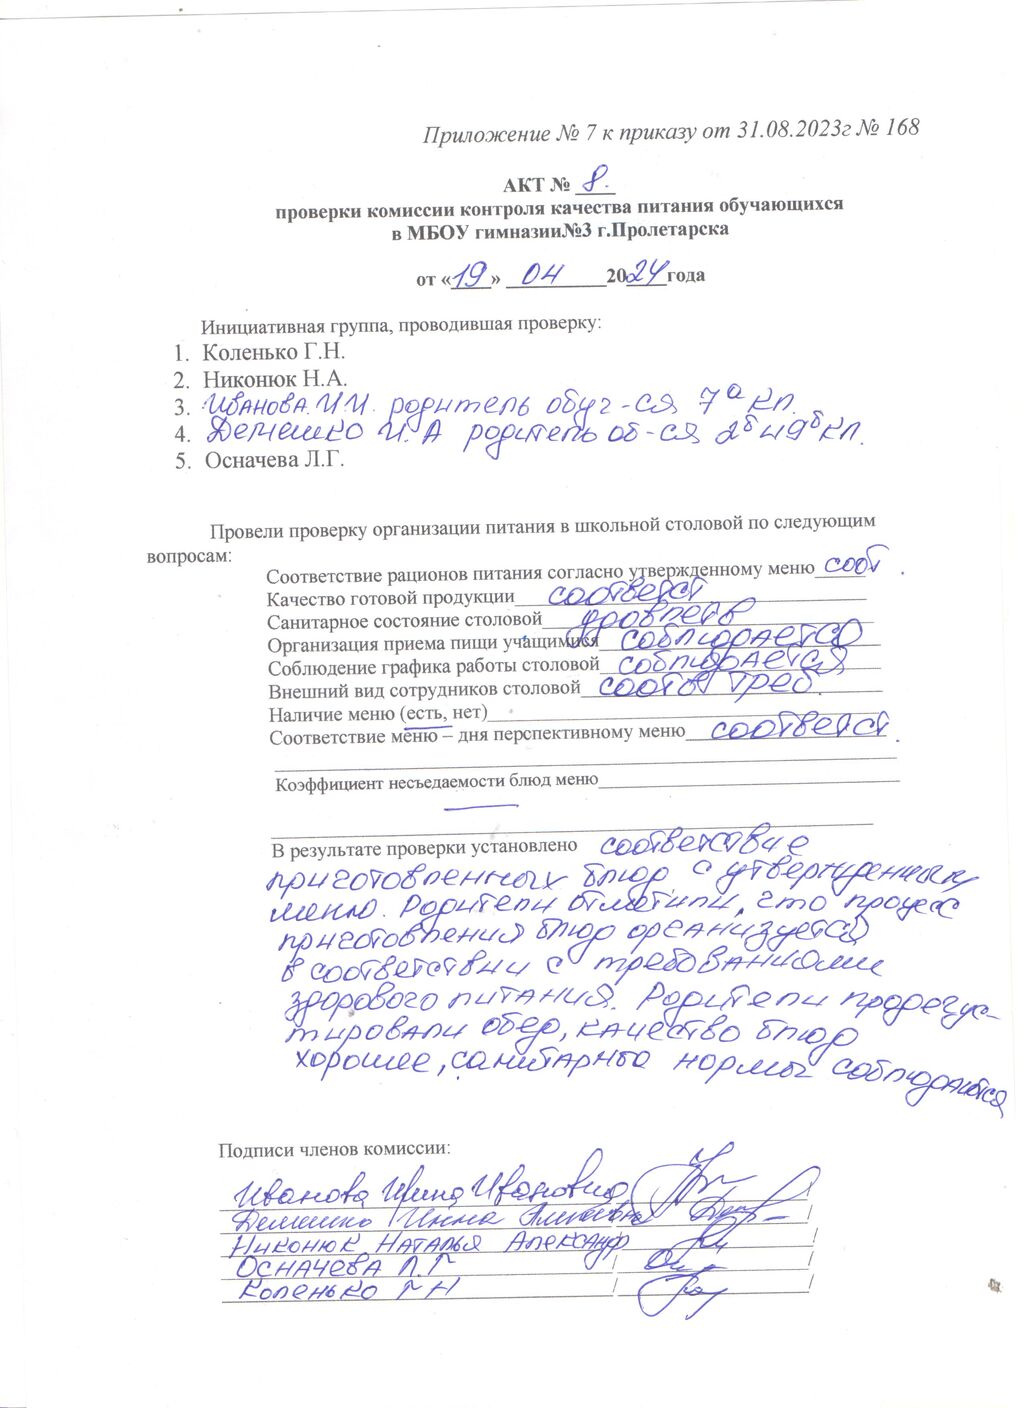 Приложение № 7 к приказу от 31.08.2023г № 168
АКТ № 8.
проверки комиссии контроля качества питания обучающихся
в МБОУ гимназии№3 г.Пролетарска
от «19» 04 2024года
Инициативная группа, проводившая проверку:
1. Коленько Г.Н.
2. Никонюк Н.А.
3. Иванова И.И. родитель обуч-ся 7а кл.
4. Демешко И.А родитель об-ся 2б и 9б кл.
5. Осначева Л.Г.
Провели проверку организации питания в школьной столовой по следующим
вопросам:
Соответствие рационов питания согласно утвержденному меню соот .
Качество готовой продукции соответст
Санитарное состояние столовой удовлетв
Организация приема пищи учащимися соблюдается
Соблюдение графика работы столовой соблюдается
Внешний вид сотрудников столовой соотв треб.
Наличие меню (есть, нет)
Соответствие меню – дня перспективному меню соответст .
Коэффициент несъедаемости блюд меню
В результате проверки установлено соответствие
приготовленных блюд с утвержденным
меню. Родители отметили, что процесс
приготовления блюд организуется
в соответствии с требованиями
здорового питания. Родители продегус-
тировали обед, качество блюд
хорошее, санитарные нормы соблюдаются
Подписи членов комиссии:
Иванова Ирина Ивановна /
Демешко Инна /
Никонюк Наталья Александр /
Осначева Л.Г /
Коленько Г Н /